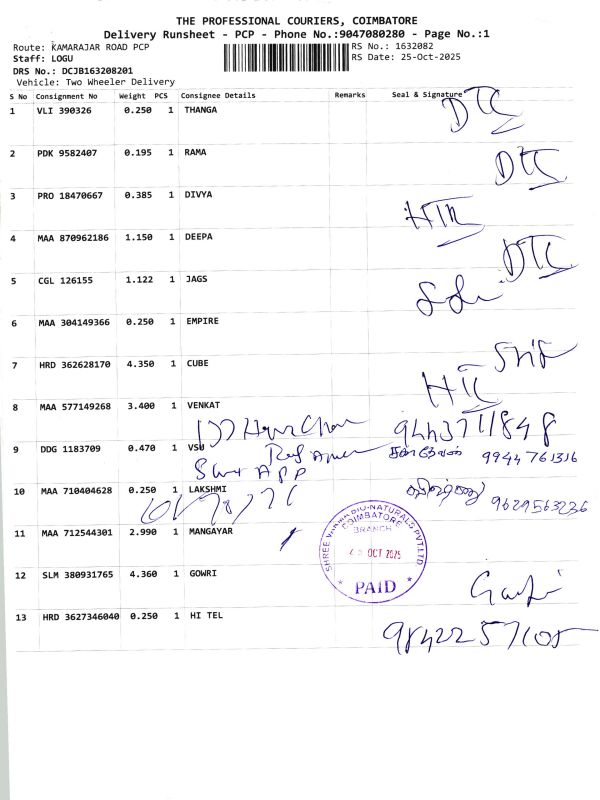 THE PROFESSIONAL COURIERS, COIMBATORE
Delivery Runsheet - PCP - Phone No.:9047080280 - Page No.:1
Route: KAMARAJAR ROAD PCP RS No.: 1632082
Staff: LOGU RS Date: 25-Oct-2025
DRS No.: DCJB163208201
Vehicle: Two Wheeler Delivery
S No Consignment No Weight PCS Consignee Details Remarks Seal & Signature
1 VLI 390326 0.250 1 THANGA DTC
2 PDK 9582407 0.195 1 RAMA DTC
3 PRO 18470667 0.385 1 DIVYA
4 MAA 870962186 1.150 1 DEEPA DTC
5 CGL 126155 1.122 1 JAGS
6 MAA 304149366 0.250 1 EMPIRE
7 HRD 362628170 4.350 1 CUBE
8 MAA 577149268 3.400 1 VENKAT
9443711848
9 DDG 1183709 0.470 1 VSU 9944761316
10 MAA 710404628 0.250 1 LAKSHMI 9629563236
11 MAA 712544301 2.990 1 MANGAYAR
SHREE BIO-NATURALS PVT.LTD
COIMBATORE
BRANCH
OCT 2025
PAID
12 SLM 380931765 4.360 1 GOWRI
13 HRD 3627346040 0.250 1 HI TEL
9842257105